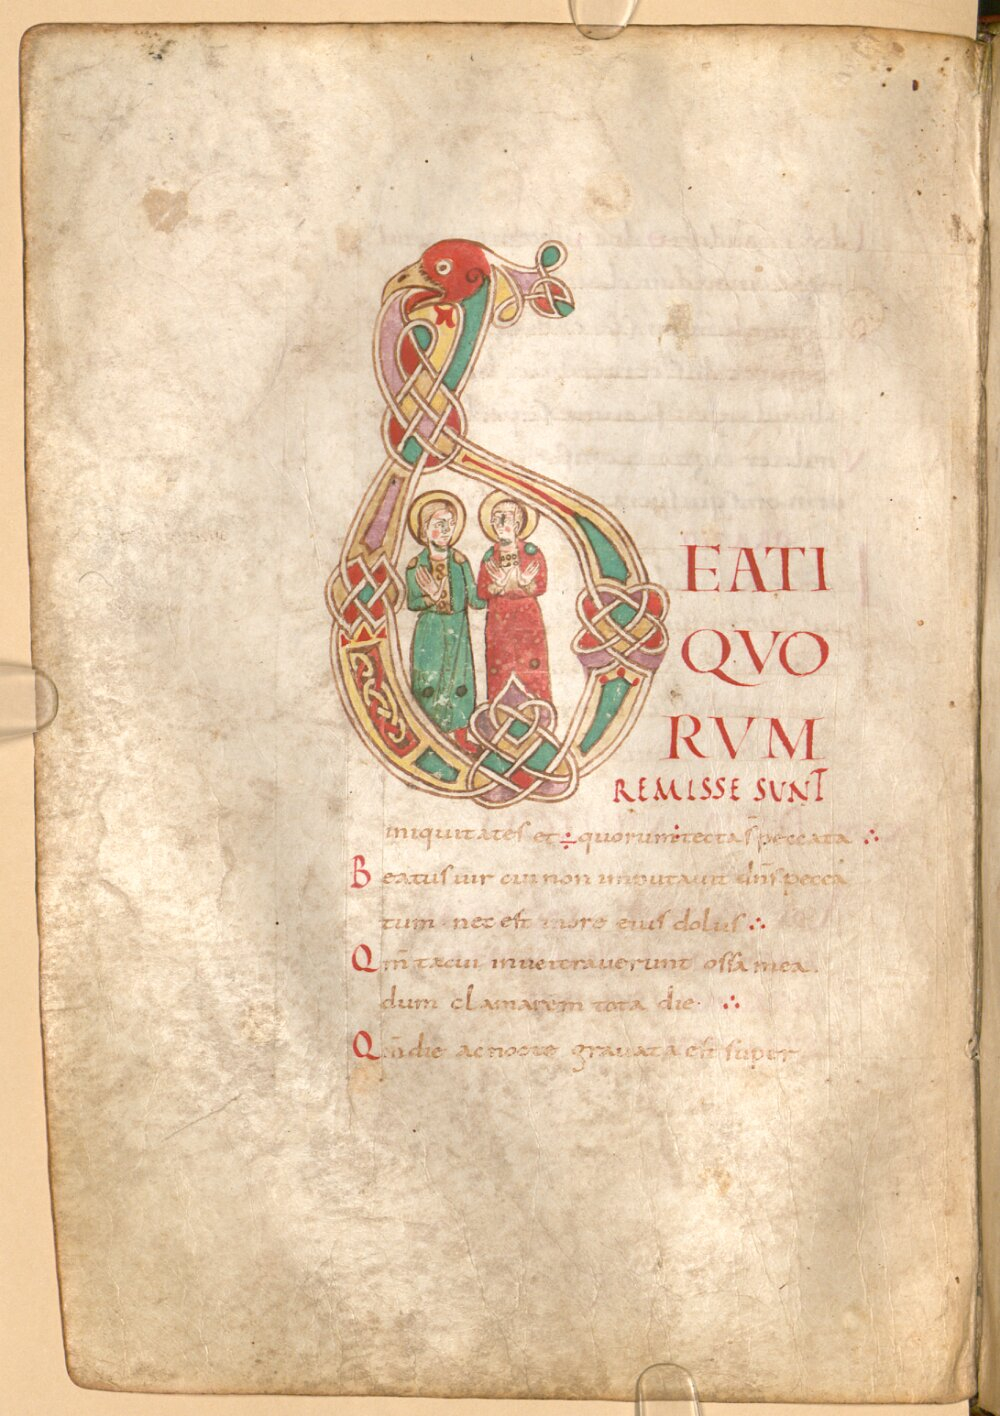 BEATI
QVO
RVM
REMISSE SUNT
iniquitates et ÷ quorum : tecta s̄ peccata ∴
Beatus uir cui non inputauit dn̄s pecca
tum · nec est in ore eius dolus ∴
Qm̄ tacui inueterauerunt ossa mea ·
dum clamarem tota die · ∴
Qm̄ die ac nocte grauata est super